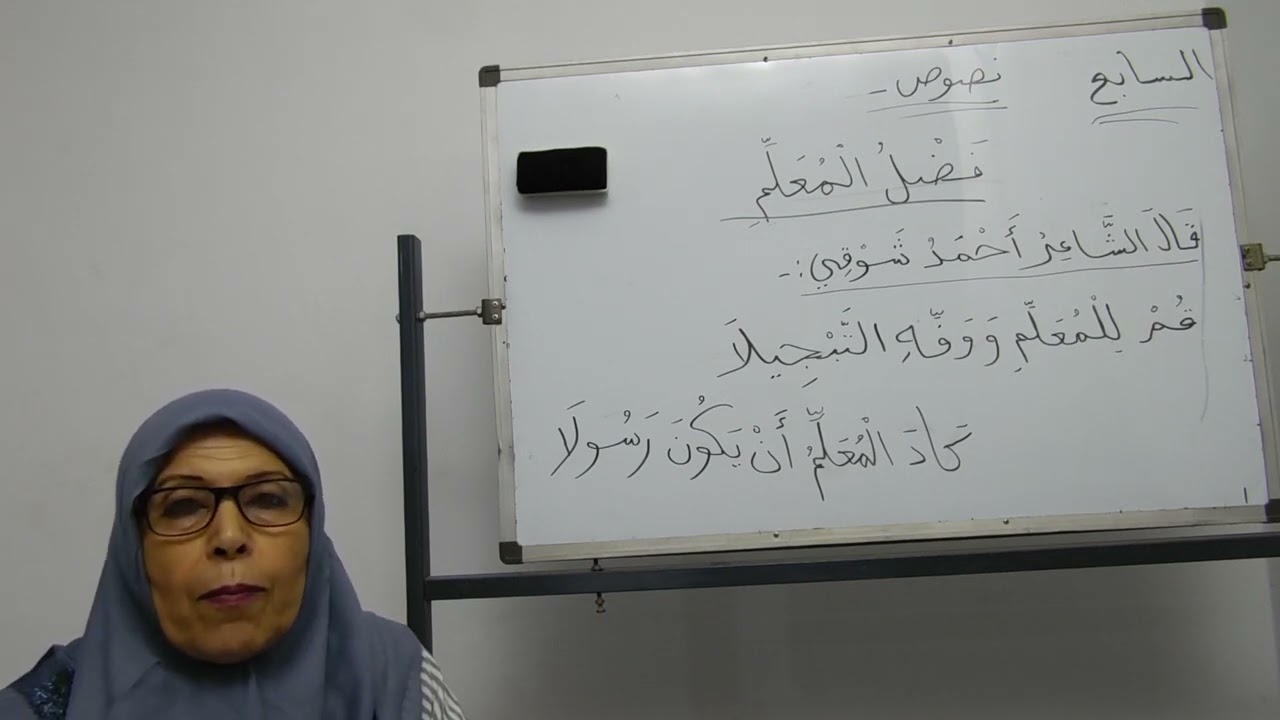 السابع نصوص -
فَضْلُ الْمُعَلِّمِ
قَالَ الشَّاعِرُ أَحْمَدُ شَوْقِي :-
قُمْ لِلْمُعَلِّمِ وَوَفِّهِ التَّبْجِيلاَ
كَادَ الْمُعَلِّمُ أَنْ يَكُونَ رَسُولاَ